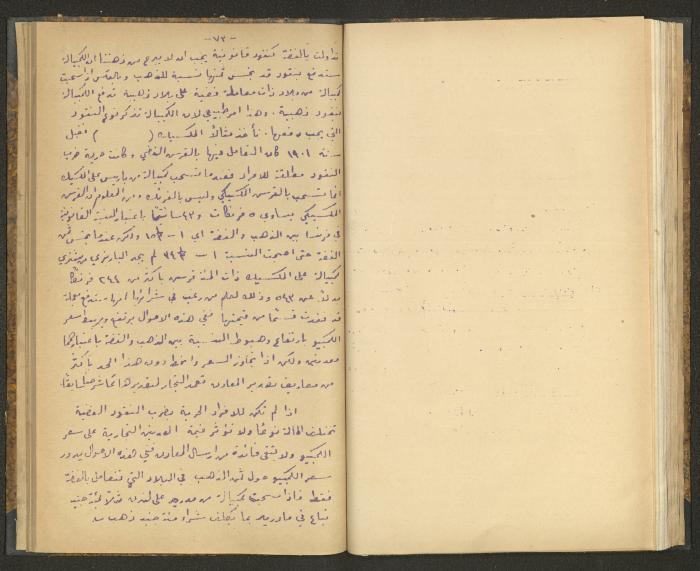 -٧٣-
تداولت بالفضة كنقود قانونية يجب ان لا يبرح من ذهننا ان الكمبيالة
ستدفع بنقود قد بخس ثمنها نسبة للذهب وبالعكس اذا سحبت
كمبيالة من بلاد ذات معاملة فضية على بلاد ذهبية تدفع الكمبيالة
بنقود ذهبية. وهذا امر طبيعي لان الكمبيالة تذكر نوع النقود
التي يجب دفعها. نأخذ مثالاً المكسيك ( ) فقبل
سنة ١٩٠١ كان التعامل فيها بالقرش الفضي وكانت حرية ضرب
النقود مطلقة للافراد فعندما تسحب كمبيالة من باريس على المكسيك
انما تسحب بالقرش المكسيكي وليس بالفرنك ومن المعلوم ان القرش
المكسيكي يساوي ٥ فرنكات و٤٣ سانتيما باعتبار النسبة القانونية
في فرنسا بين الذهب والفضة اي ١ - ١٥ ولكن عندما بخس ثمن
الفضة حتى اصبحت النسبة ١ - ٣٤ لم يجد الباريزي من يشتري
كمبيالة على المكسيك ذات المئة قرش باكثر من ٢٤٤ فرنكاً
بدلاً من ٥٤٣ وذلك لعلم من رغب في شرائها انها ستدفع بعملة
قد فقدت قسماً من قيمتها ففي هذه الاحوال يرتفع ويهبط سعر
الكمبيو بارتفاع وهبوط النسبة بين الذهب والفضة باعتبارهما
معدنين ولكن اذا تجاوز السعر وانحط دون هذا الحد باكثر
من مصاريف تصدير المعادن تعمد التجار لتصديرها كما شرحنا سابقاً.
اذا لم تكن للافراد الحرية بضرب النقود الفضية
تختلف الحالة نوعاً ولا تؤثر قيمة المعدنين التجارية على سعر
الكمبيو ولا تبقى فائدة من ارسال المعادن ففي هذه الاحوال يدور
سعر الكمبيو حول ثمن الذهب في البلاد التي تتعامل بالفضة
فقط فاذا سحبت كمبيالة من مدريد على لندن مثلا بمئة جنيه
تباع في مادريد بما يكلف شراء مئة جنيه ذهب